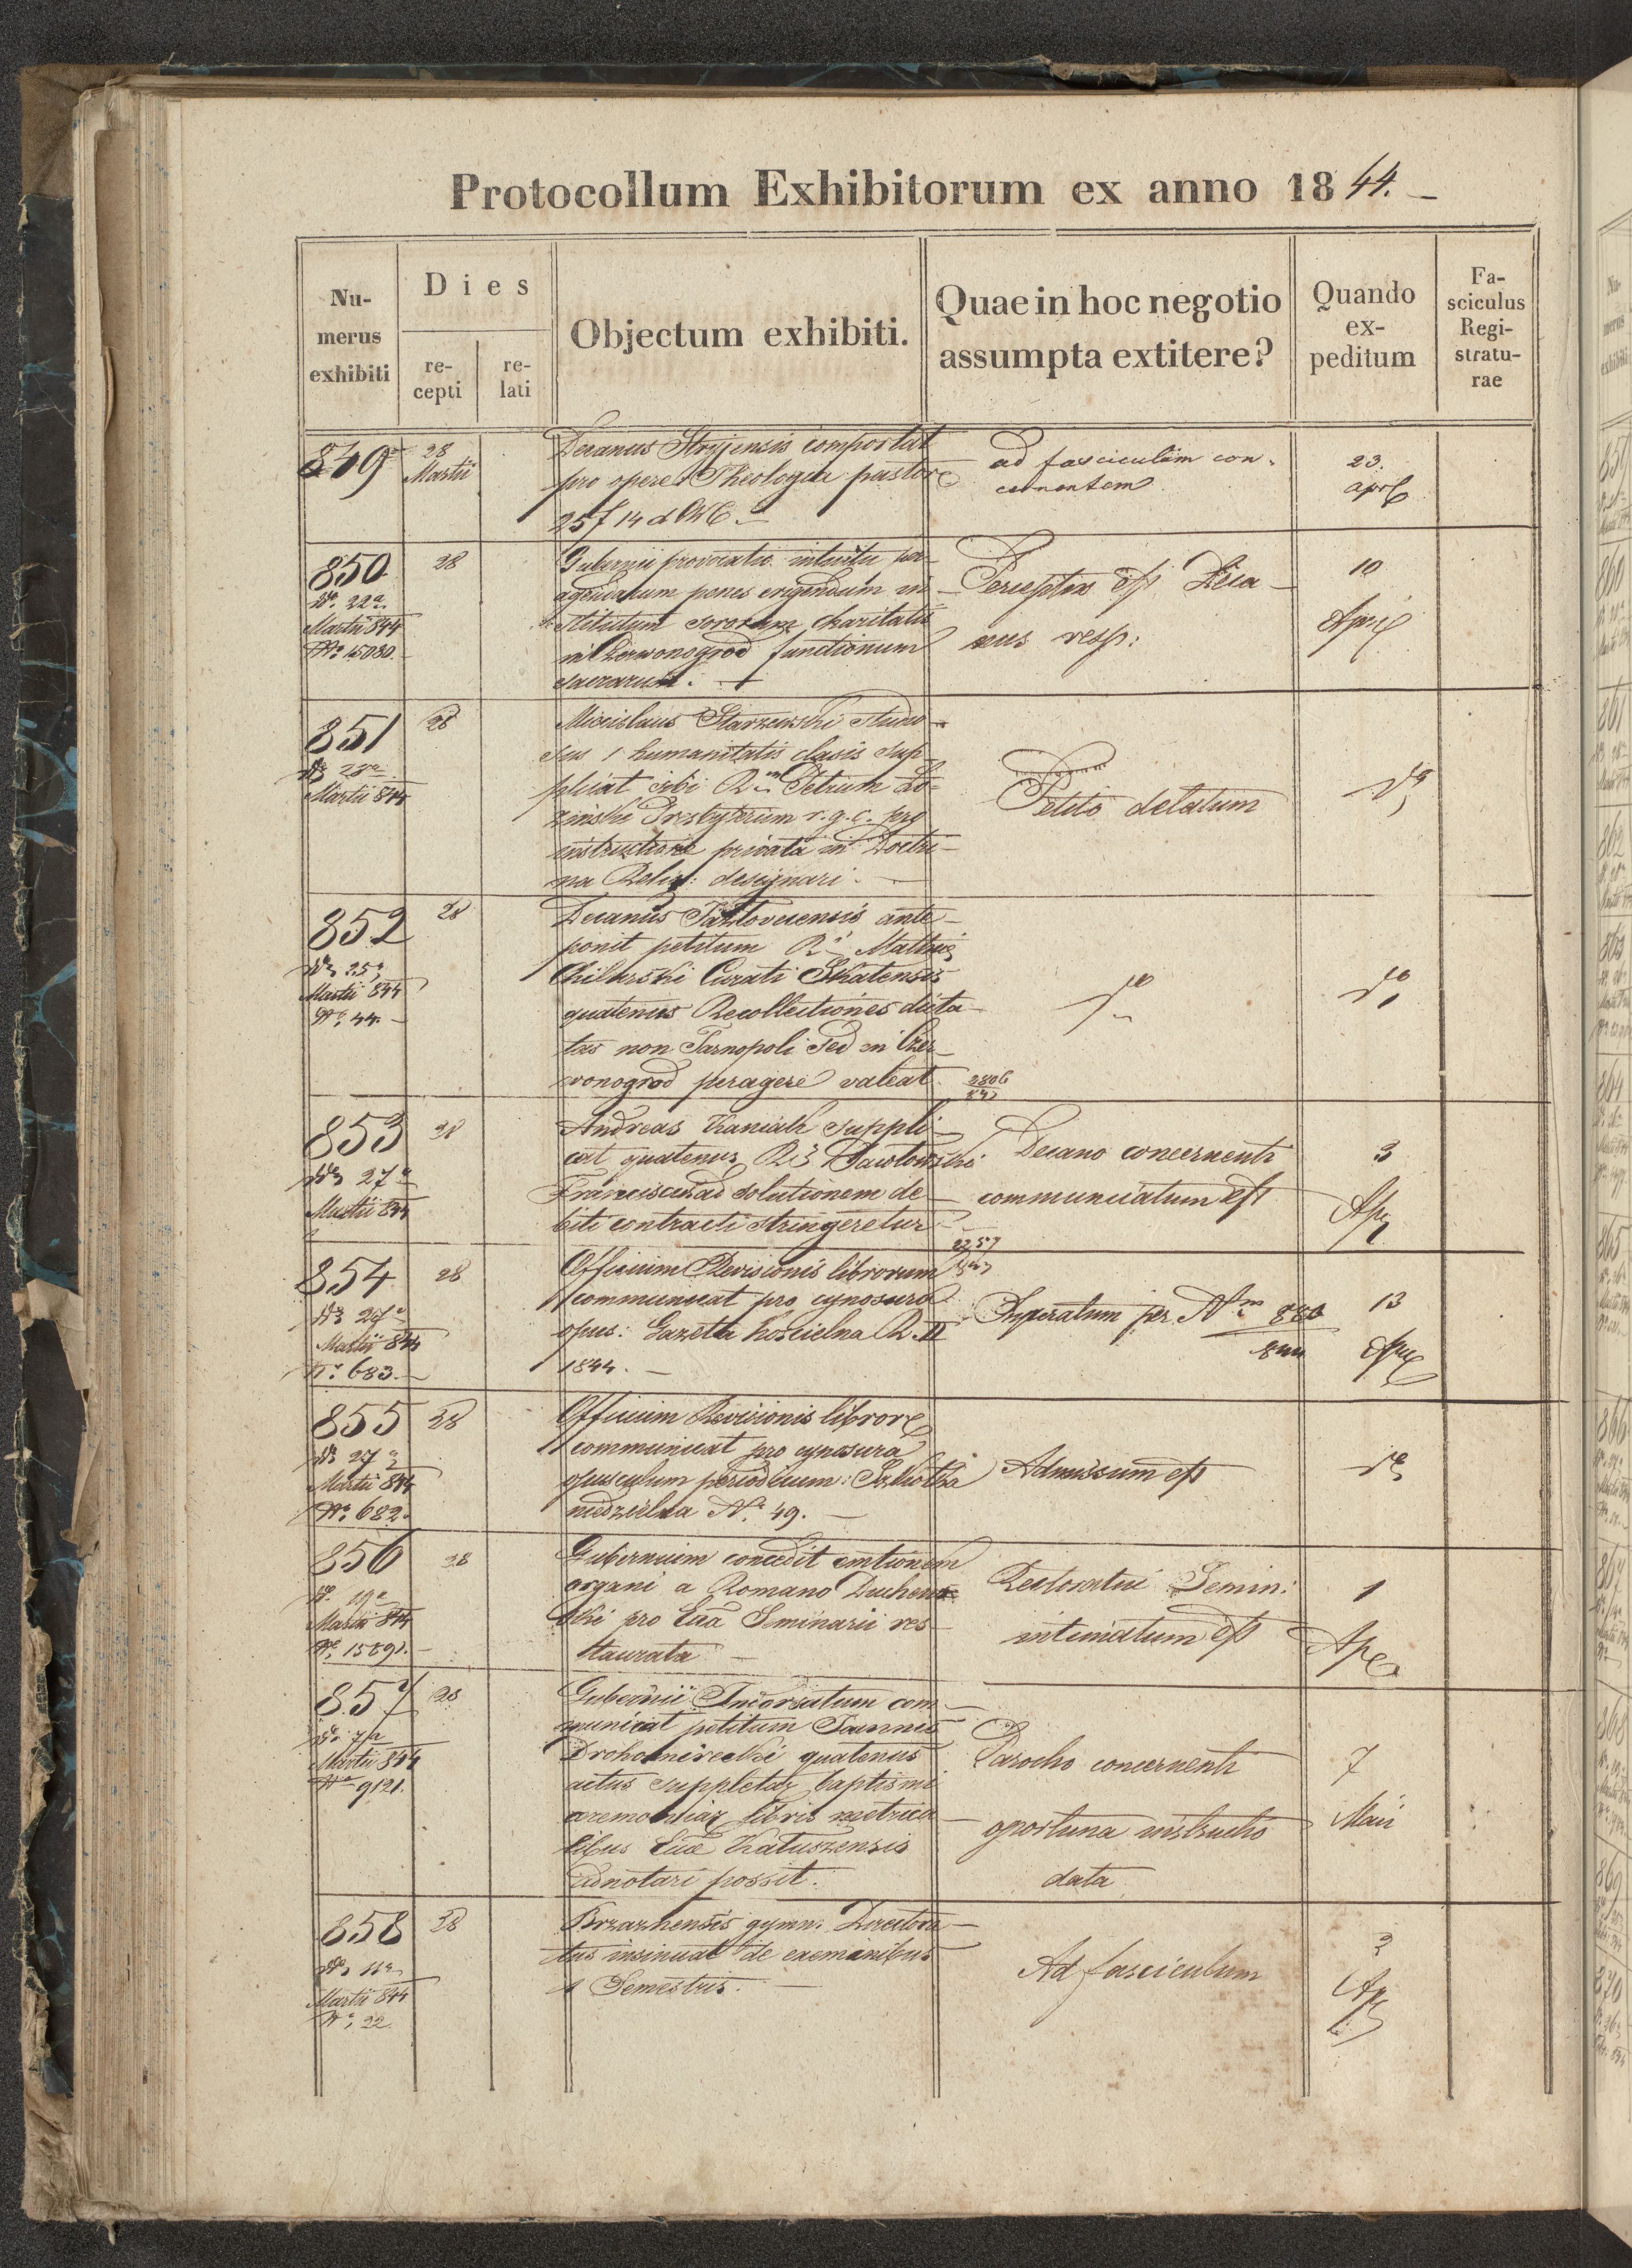 Protocollum Exhibitorum ex anno 1844.
Numerus exhibiti
Dies
recepti
relati
Objectum exhibiti.
Quae in hoc negotio assumpta extitere?
Quando expeditum
Fasciculus Registraturae
849
28 Martii
Decanus Stryjensis comportat
pro opere Theologia pastor
25 f 14 d
ad fasciculum con-
cernentem
23.
April
850
22a
Martii 844
No 15080.
28
Gubernii provocatio intuitu per-
agendarum penes erigendum in-
stitutum sororum charitatis
in Czerwonogrod functionum
sacrarum.
Perceptus est Deca-
nus resp:
10
April
851
Martii 844
28
Miecislaus Starzewski studio-
sus 1 humanitatis clasis sup-
plicat sibi R. Petrum Lo-
zinski Presbyterum r. g. c. pro
instructione privata in Doctri-
na Relig: designari.
Petito delatum
852
25
Martii 844
No 44.
28
Decanus Jazlovecensis ante-
ponit petitum Rdi Mathiae
Curati Skalensis
quatenus Recollectiones dicta-
tas non Tarnopoli sed in Czer-
wonogrod peragere valeat.
853
27a
Martii 844
28
Andreas Kaniak suppli-
cat quatenus
Franciscus ad solutionem de-
biti contracti stringeretur
2806
843
Decano concernenti
communicatum est
3
Apr
854
27a
Martii 844
No 683.
28
Officium Revisionis librorum
communicat pro cynosura
opus: Gazeta kościelna N. II
1844.
2257
per Nm
844
13
April
855
27a
Martii 844
No 682.
28
Officium Revisionis libror
communicat pro cynosura
opusculum periodicum: Szkółka
niedzielna No 49.
Admissum est
856
19a
Martii 844
28
Gubernium concedit emtionem
organi a Romano
pro Ecca Seminarii res-
taurata
Rectoratui Semin:
intimatum est
1
Apr
857
7a
Martii 844
No 9121.
28
Gubernii Indorsatum com-
municat petitum Joannis
Drohomirecki quatenus
actus suppletae baptismi
ceremoniae libris metrica-
libus Ecae Kaluszensis
adnotari possit.
Parocho concernenti
oportuna instructio
data
7
Maii
858
11a
Martii 844
No 22.
28
Brzeżanensis gymn. Directora-
tus insinuat de examinibus
1 Semestris.
Ad fasciculum
2
Apr